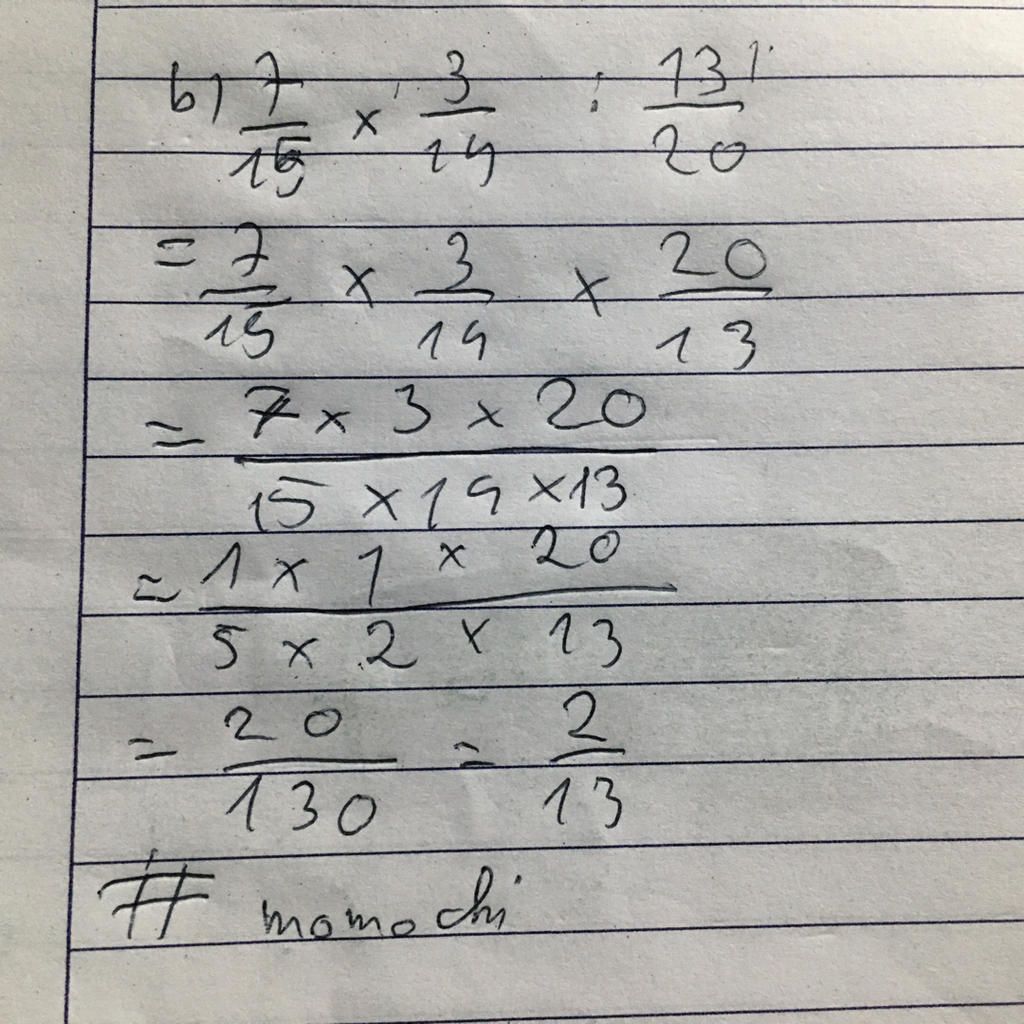 b) 7/15 × 3/14 : 13/20
= 7/15 × 3/14 × 20/13
= 7 × 3 × 20 / 15 × 14 × 13
= 1 × 1 × 20 / 5 × 2 × 13
= 20/130 = 2/13
# momochi